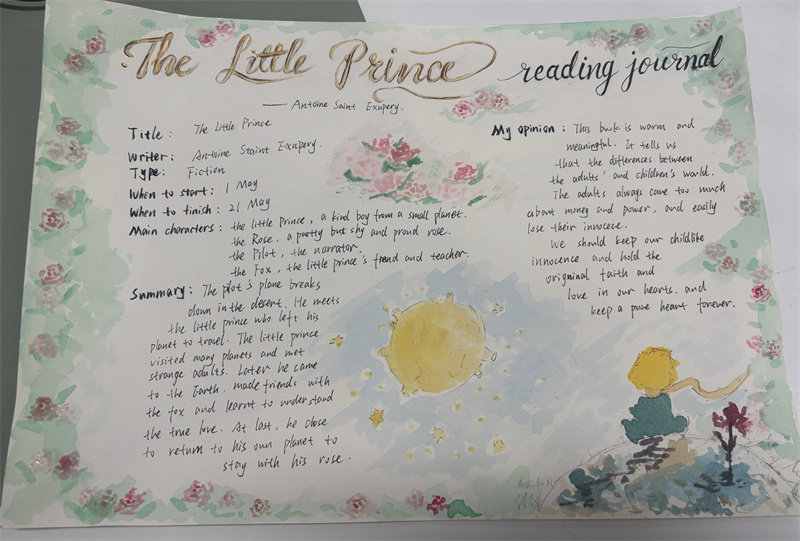 The Little Prince reading journal
—— Antoine Saint Exupery.
Title: The Little Prince
Writer: Antoine Staint Exupery.
Type: Fiction
When to start: 1 May
When to finish: 21 May
Main characters: the little prince, a kind boy from a small planet.
the Rose, a pretty but shy and proud rose.
the Pilot, the narrator.
the Fox, the little prince's friend and teacher.
Summary: The pilot's plane breaks
down in the desert. He meets
the little prince who left his
planet to travel. The little prince
visited many planets and met
strange adults. Later he came
to the Earth, made friends with
the fox and learnt to understand
the true love. At last, he chose
to return to his own planet to
stay with his rose.
My opinion: This book is warm and
meaningful. It tells us
that the differences between
the adults' and children's world.
The adults always care too much
about money and power, and easily
lose their innocece.
We should keep our childlike
innocence and hold the
original faith and
love in our hearts, and
keep a pure heart forever.